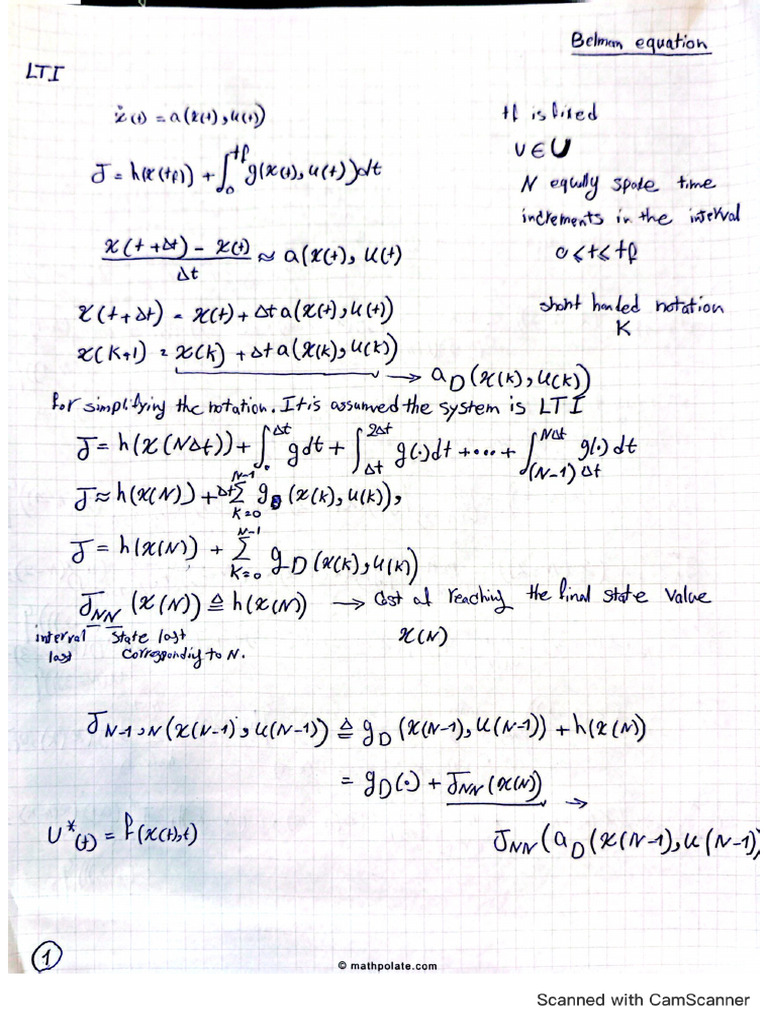 Belman equation
LTI
ẋ(t) = a(x(t), u(t))
tf is fixed
J = h(x(tf)) + ∫₀^tf g(x(t), u(t)) dt
U ∈ U
N equally spate time
increments in the interval
0 ≤ t ≤ tf
x(t + Δt) - x(t) / Δt ≈ a(x(t), u(t)
x(t + Δt) = x(t) + Δt a(x(t), u(t))
short handed notation
K
x(k+1) = x(k) + Δt a(x(k), u(k))
→ a_D(x(k), u(k))
for simplifying the notation. It is assumed the system is LTI
J = h(x(NΔt)) + ∫₀^Δt g dt + ∫_Δt^2Δt g(.) dt + .... + ∫_(N-1)Δt^NΔt g(.) dt
J ≈ h(x(N)) + Δt Σ_{k=0}^{N-1} g (x(k), u(k)),
J = h(x(N)) + Σ_{k=0}^{N-1} g_D (x(k), u(k))
J_NN (x(N)) ≜ h(x(N)) → Cost of reaching the final state value
x(N)
interval last
state last correspondig to N.
J_N-1,N (x(N-1), u(N-1)) ≜ g_D (x(N-1), u(N-1)) + h(x(N))
= g_D(.) + J_NN (x(N)) →
J_NN (a_D (x(N-1), u(N-1))
U*(t) = f(x(t), t)
1
© mathpolate.com
Scanned with CamScanner